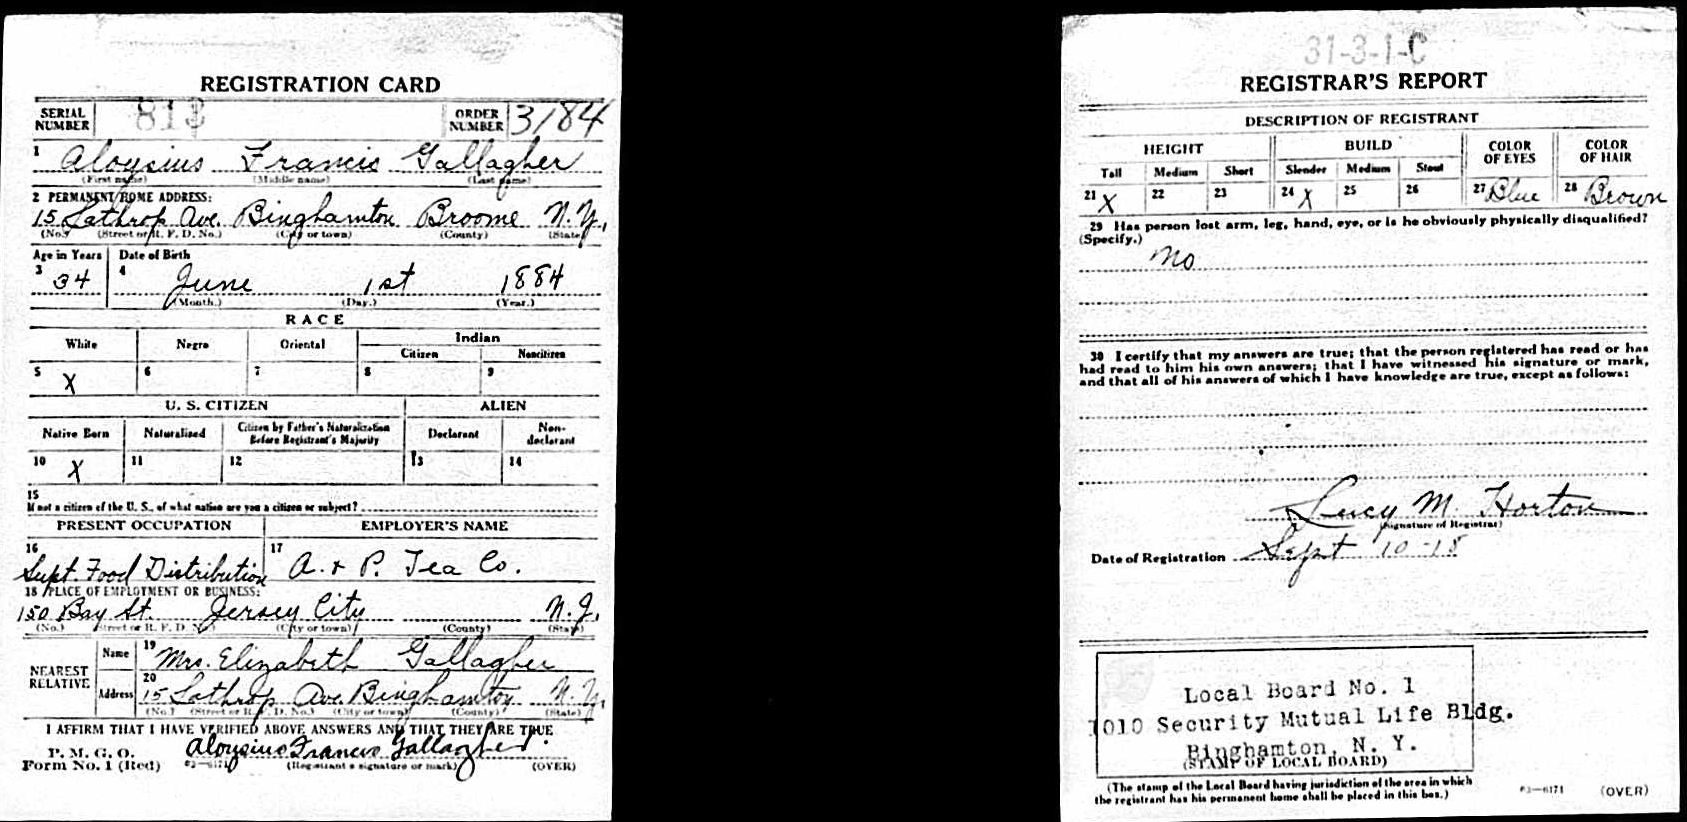 REGISTRATION CARD
SERIAL NUMBER 813 ORDER NUMBER 3184
1 Aloysius Francis Gallagher
(First name) (Middle name) (Last name)
2 PERMANENT HOME ADDRESS:
15 Lathrop Ave. Binghamton Broome N.Y.
(No.) (Street or R. F. D. No.) (City or town) (County) (State)
Age in Years Date of Birth
3 34 4 June 1st 1884
(Month.) (Day.) (Year.)
RACE
White Negro Oriental Indian
Citizen Noncitizen
5 X 6 7 8 9
U. S. CITIZEN ALIEN
Native Born Naturalized Citizen by Father's Naturalization Before Registrant's Majority Declarant Non-declarant
10 X 11 12 13 14
15
If not a citizen of the U. S., of what nation are you a citizen or subject?
PRESENT OCCUPATION EMPLOYER'S NAME
16 Supt. Food Distribution 17 A. & P. Tea Co.
18 PLACE OF EMPLOYMENT OR BUSINESS:
150 Bay St. Jersey City N.J.
(No.) (Street or R. F. D. No.) (City or town) (County) (State)
NEAREST RELATIVE
Name 19 Mrs. Elizabeth Gallagher
Address 20 15 Lathrop Ave. Binghamton N.Y.
(No.) (Street or R. F. D. No.) (City or town) (County) (State)
I AFFIRM THAT I HAVE VERIFIED ABOVE ANSWERS AND THAT THEY ARE TRUE
P. M. G. O.
Form No. 1 (Red) 03—6171 Aloysius Francis Gallagher.
(Registrant's signature or mark) (OVER)
31-3-1-C
REGISTRAR'S REPORT
DESCRIPTION OF REGISTRANT
HEIGHT BUILD COLOR OF EYES COLOR OF HAIR
Tall Medium Short Slender Medium Stout
21 X 22 23 24 X 25 26 27 Blue 28 Brown
29 Has person lost arm, leg, hand, eye, or is he obviously physically disqualified?
(Specify.)
No
30 I certify that my answers are true; that the person registered has read or has
had read to him his own answers; that I have witnessed his signature or mark,
and that all of his answers of which I have knowledge are true, except as follows:
Lucy M. Horton
(Signature of Registrar)
Date of Registration Sept 10-18
Local Board No. 1
1010 Security Mutual Life Bldg.
Binghamton, N. Y.
(STAMP OF LOCAL BOARD)
(The stamp of the Local Board having jurisdiction of the area in which
the registrant has his permanent home shall be placed in this box.)
03—6171 (OVER)